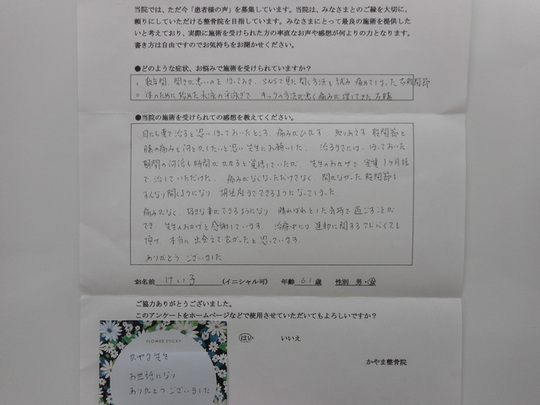 当院では、ただ今「患者様の声」を募集しています。当院は、みなさまとのご縁を大切に、
頼りにしていただける整骨院を目指しています。みなさまにとって最良の施術を提供した
いと考えており、実際に施術を受けられた方の率直なお声や感想が何よりの力となります。
書き方は自由ですのでお気持ちをお聞かせください。
●どのような症状、お悩みで施術を受けられていますか？
数年間、開きが悪いのを ほっておき、 見た開く方法を試み 痛めてしまった右股関節
体のために始めた水泳の平泳ぎで キックの方法が悪く痛みが 右膝
●当院の施術を受けられての感想を教えてください。
思い ほっておいたところ 痛みがひかず 股関節と
膝の痛みを何とかしたいと思い 先生にお願いした。 治るまでには、ほっておいた
期間の何倍も時間がかかると覚悟していたが、先生のおかげで 1ヶ月程
で治していただけた。 痛みがなくなっただけでなく 開かなかった股関節も
すんなり開くようになり できるようになってしまった
痛みがなく、好きな事ができるようになり 晴れ晴れとした気持で過ごすことが
でき 先生のおかげと感謝しています。 運動に関するアドバイスも
頂け 本当に 出会えて良かったと思っています
ありがとう ございました
お名前 けい子 （イニシャル可） 年齢 61 歳 性別 男・女
ご協力ありがとうございました。
このアンケートをホームページなどで使用させていただいてもよろしいですか？
はい いいえ
かやま整骨院
FLOWER STICKY
カヤマ先生
お世話になり
ありがとう ございました